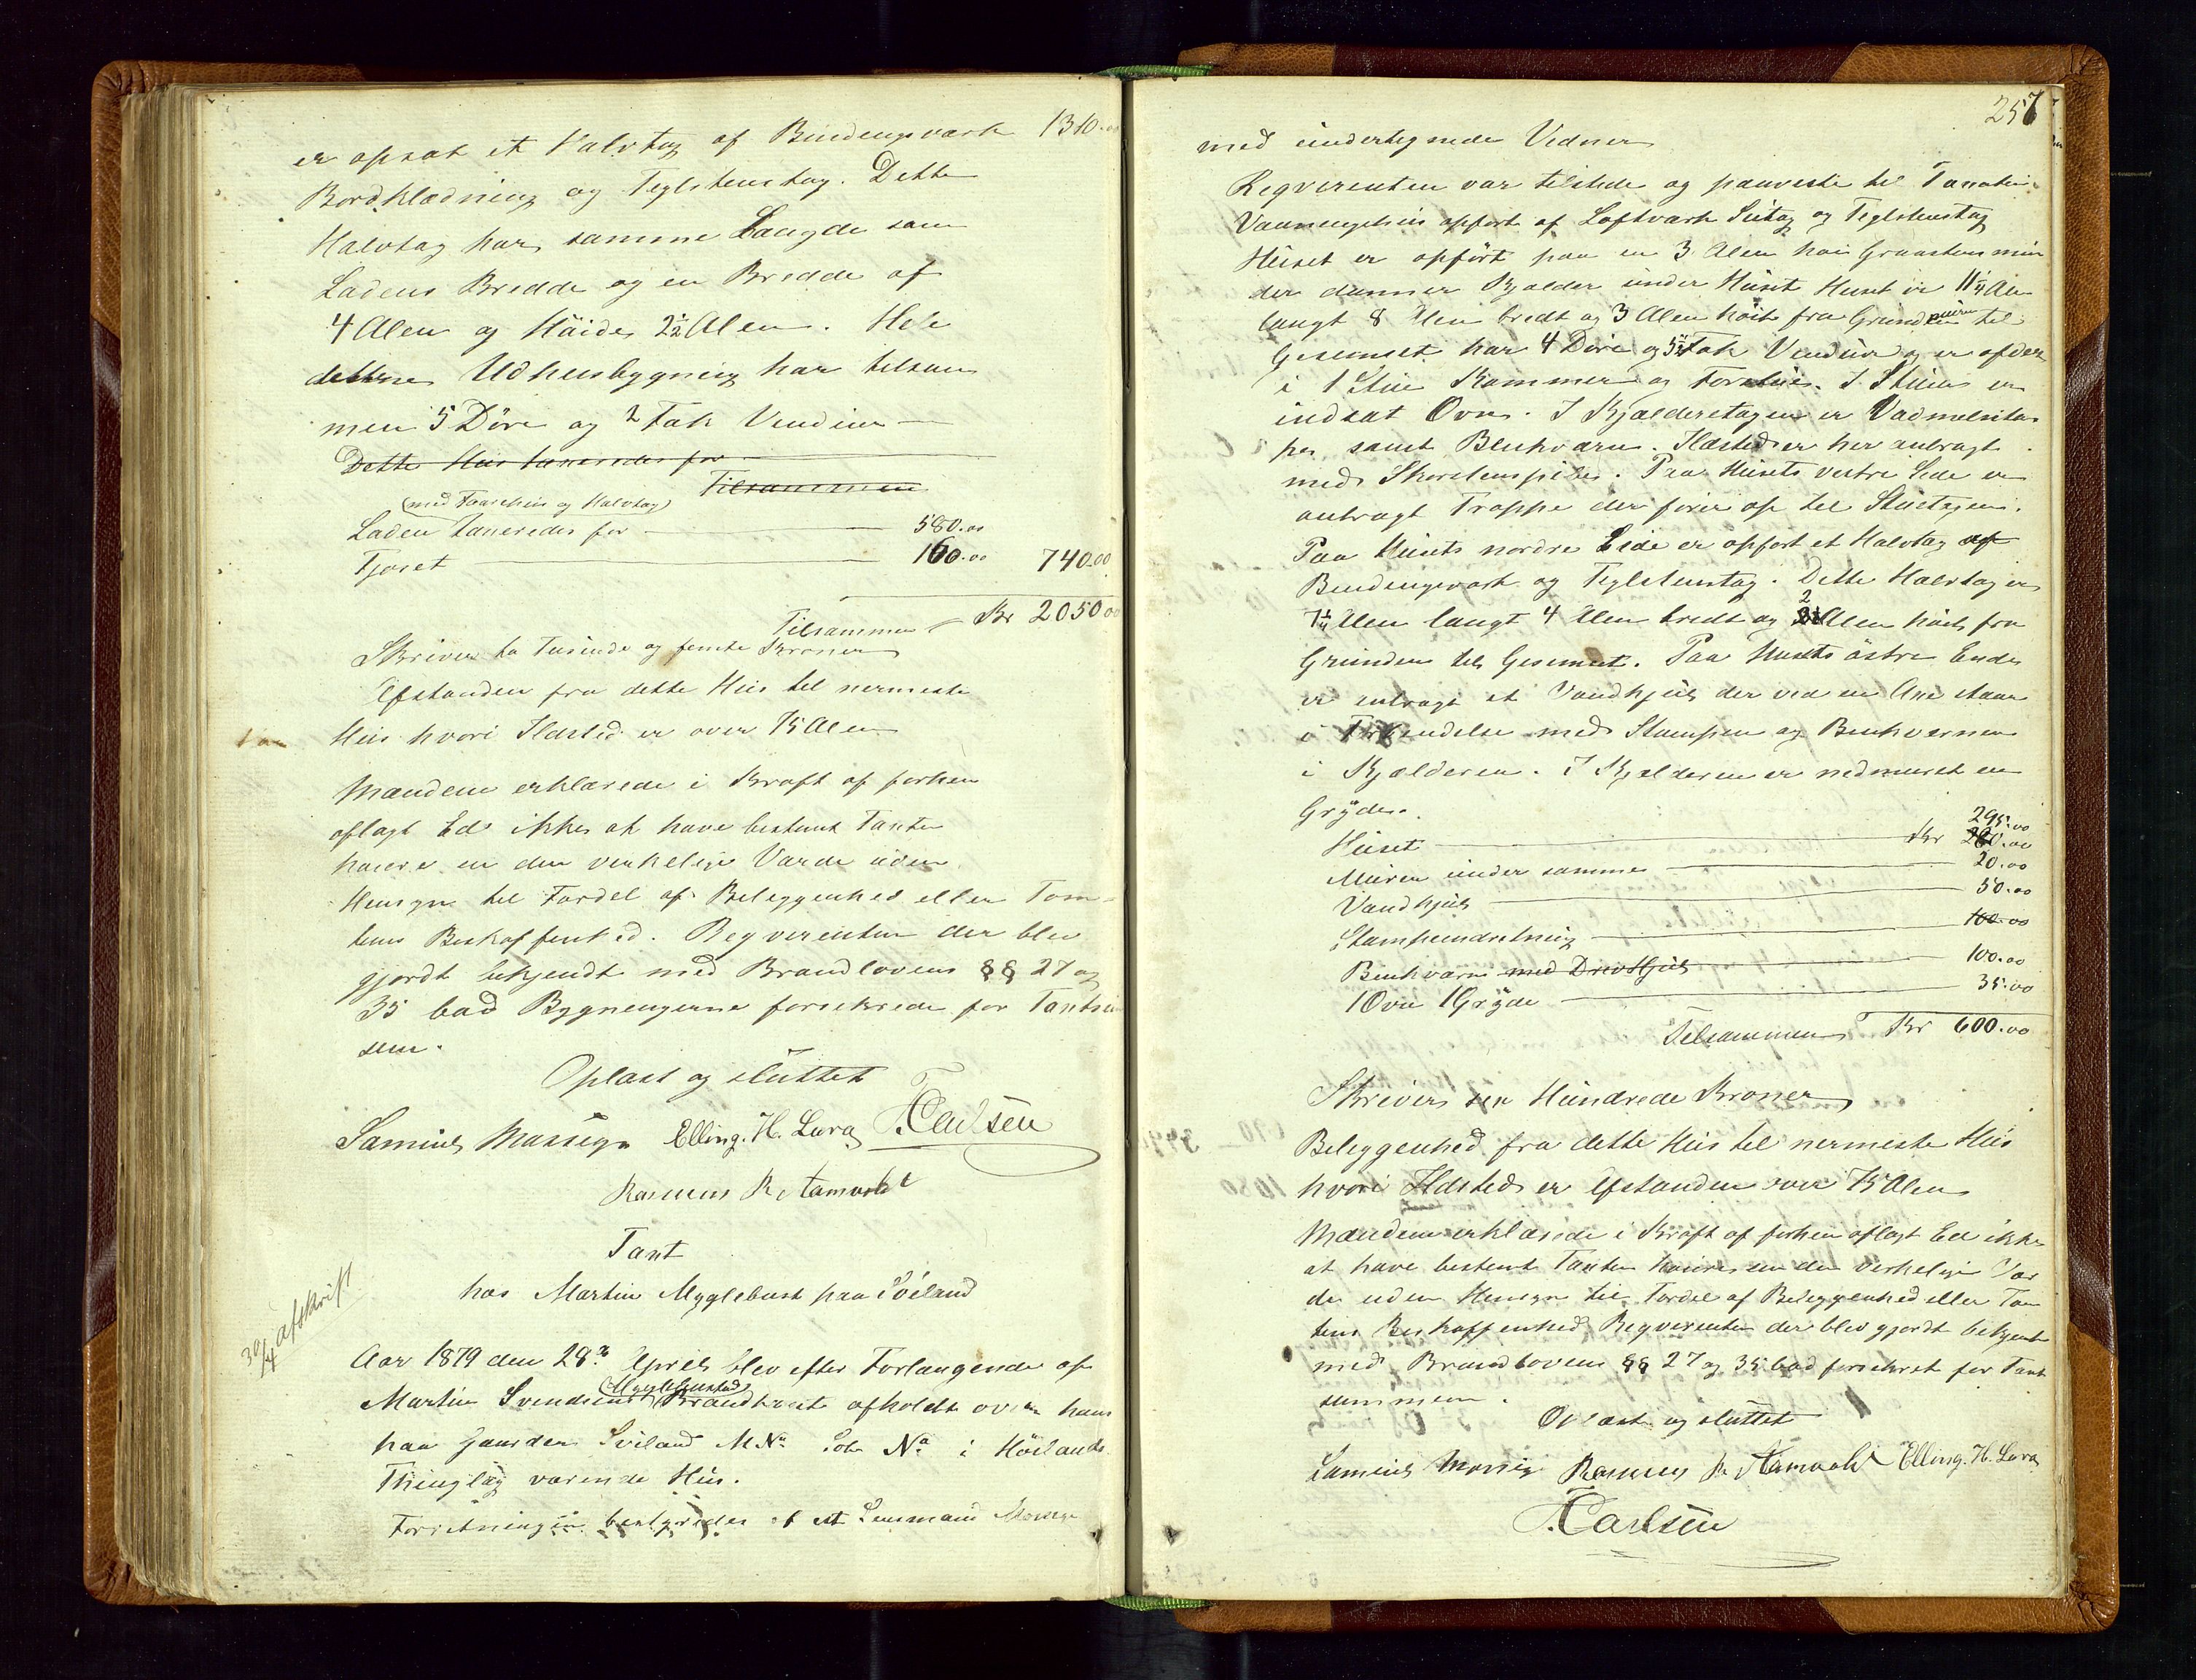 er opsat et Halvtag af Bindingsværk 1310.00
Bordklædning og Teglstenstag. Dette
Halvtag har samme Længde som
Ladens Bredde og en Bredde af
4 Alen og Höide 2½ Alen. Hele
denne Udhusbygning har tilsam
men 5 Döre og 2 Fak Vinduer
Dette Hus taxeredes for
Tilsammen
(med Taaschus og Halvtag)
Laden taxeredes for 580.00
Fjøset 160.00 740.00
Tilsammen Kr 2050.00
Skriver to Tusinde og femti Kroner
Afstanden fra dette Hus til nermeste
Hus hvori Ildsted er over 75 Alen
Mændene erklærede i Kraft af forhen
aflagt Ed ikke at have bestemt Taxten
høiere en den virkelige Værde uden
Hensyn til Fordel af Beleggenhed eller Tom-
tens Beskaffenhed. Reqverenten der blev
gjordt bekjendt med Brandlovens §§ 27 og
35 bad Bygningerne forsikrede for Taxtsum
men.
Oplæst og sluttet
Samuel Mossige Elling. H. Lura T. Carlsen
Rasmus R Aamodt
Taxt
hos Martin Myglebust paa Sviland
30/4 afskrift
Aar 1879 den 28de April blev efter Forlangende af
Myglebustad
Martin Svendsen Brandtaxt afholdt over hans
paa Gaarden Sviland M No Lobe No i Höilands
Thinglag værende Hus.
Forretningen bestyredes af Lensmand Mossige
257
med undertegnede Vidner
Reqverenten var tilstede og paaviste til Taxation
Vaaningshus opfört af Loftværk Sutag og Teglstenstag
Huset er opfört paa en 3 Alen höi Graastensmur
der danner Kjælder under Huset Huset er 11¼ Alen
langt 8 Alen bredt og 3 Alen höit fra Grundmuren til
Gesimset har 4 Döre og 5 Fak Vinduer og er afdelt
i 1 Stue Kammer og Forstue. I Stuen er
indsat Ovn. I Kjælderetagen er Vadmelsstam
pe samt Benkværn. Ildsted er her anbragt
med Skorstenspibe. Paa Husets vestre Side er
anbragt Trappe der förer op til Stuetagen.
Paa Husets nordre Side er opfört et Halvtag af
Bindingsværk og Teglstenstag. Dette Halvtag er
7¼ Alen langt 4 Alen bredt og 2 Alen höit fra
Grunden til Gesimset. Paa Husets östre Ende
er anbragt et Vandhjul der ved en Axe staar
i Forbindelse med Stampen og Benkværnen
i Kjælderen. I Kjælderen er nedmuret en
Gryde.
295.00
Huset Kr 260.00
Muren under samme 20.00
Vandhjul 50.00
Stampeindretning 100.00
Benkværn med Drivhjul 100.00
1 Ovn 1 Gryde 35.00
Tilsammen Kr 600.00
Skriver sex Hundrede Kroner
Beleggenhed fra dette Hus til nermeste Hus
hvori Ildsted er Afstanden over 75 Alen
Mændene erklærede i Kraft af forhen aflagt Ed ikke
at have bestemt Taxten høiere en den virkelige Vær
de uden Hensyn til Fordel af Beleggenhed eller Tom
tens Beskaffenhed Reqverenten der blev gjordt bekjendt
med Brandlovens §§ 27 og 35 bad forsikret for Taxt
summen.
Oplæst og sluttet
Samuel Mossige Rasmus R Aamodt Elling. H. Lura
T. Carlsen